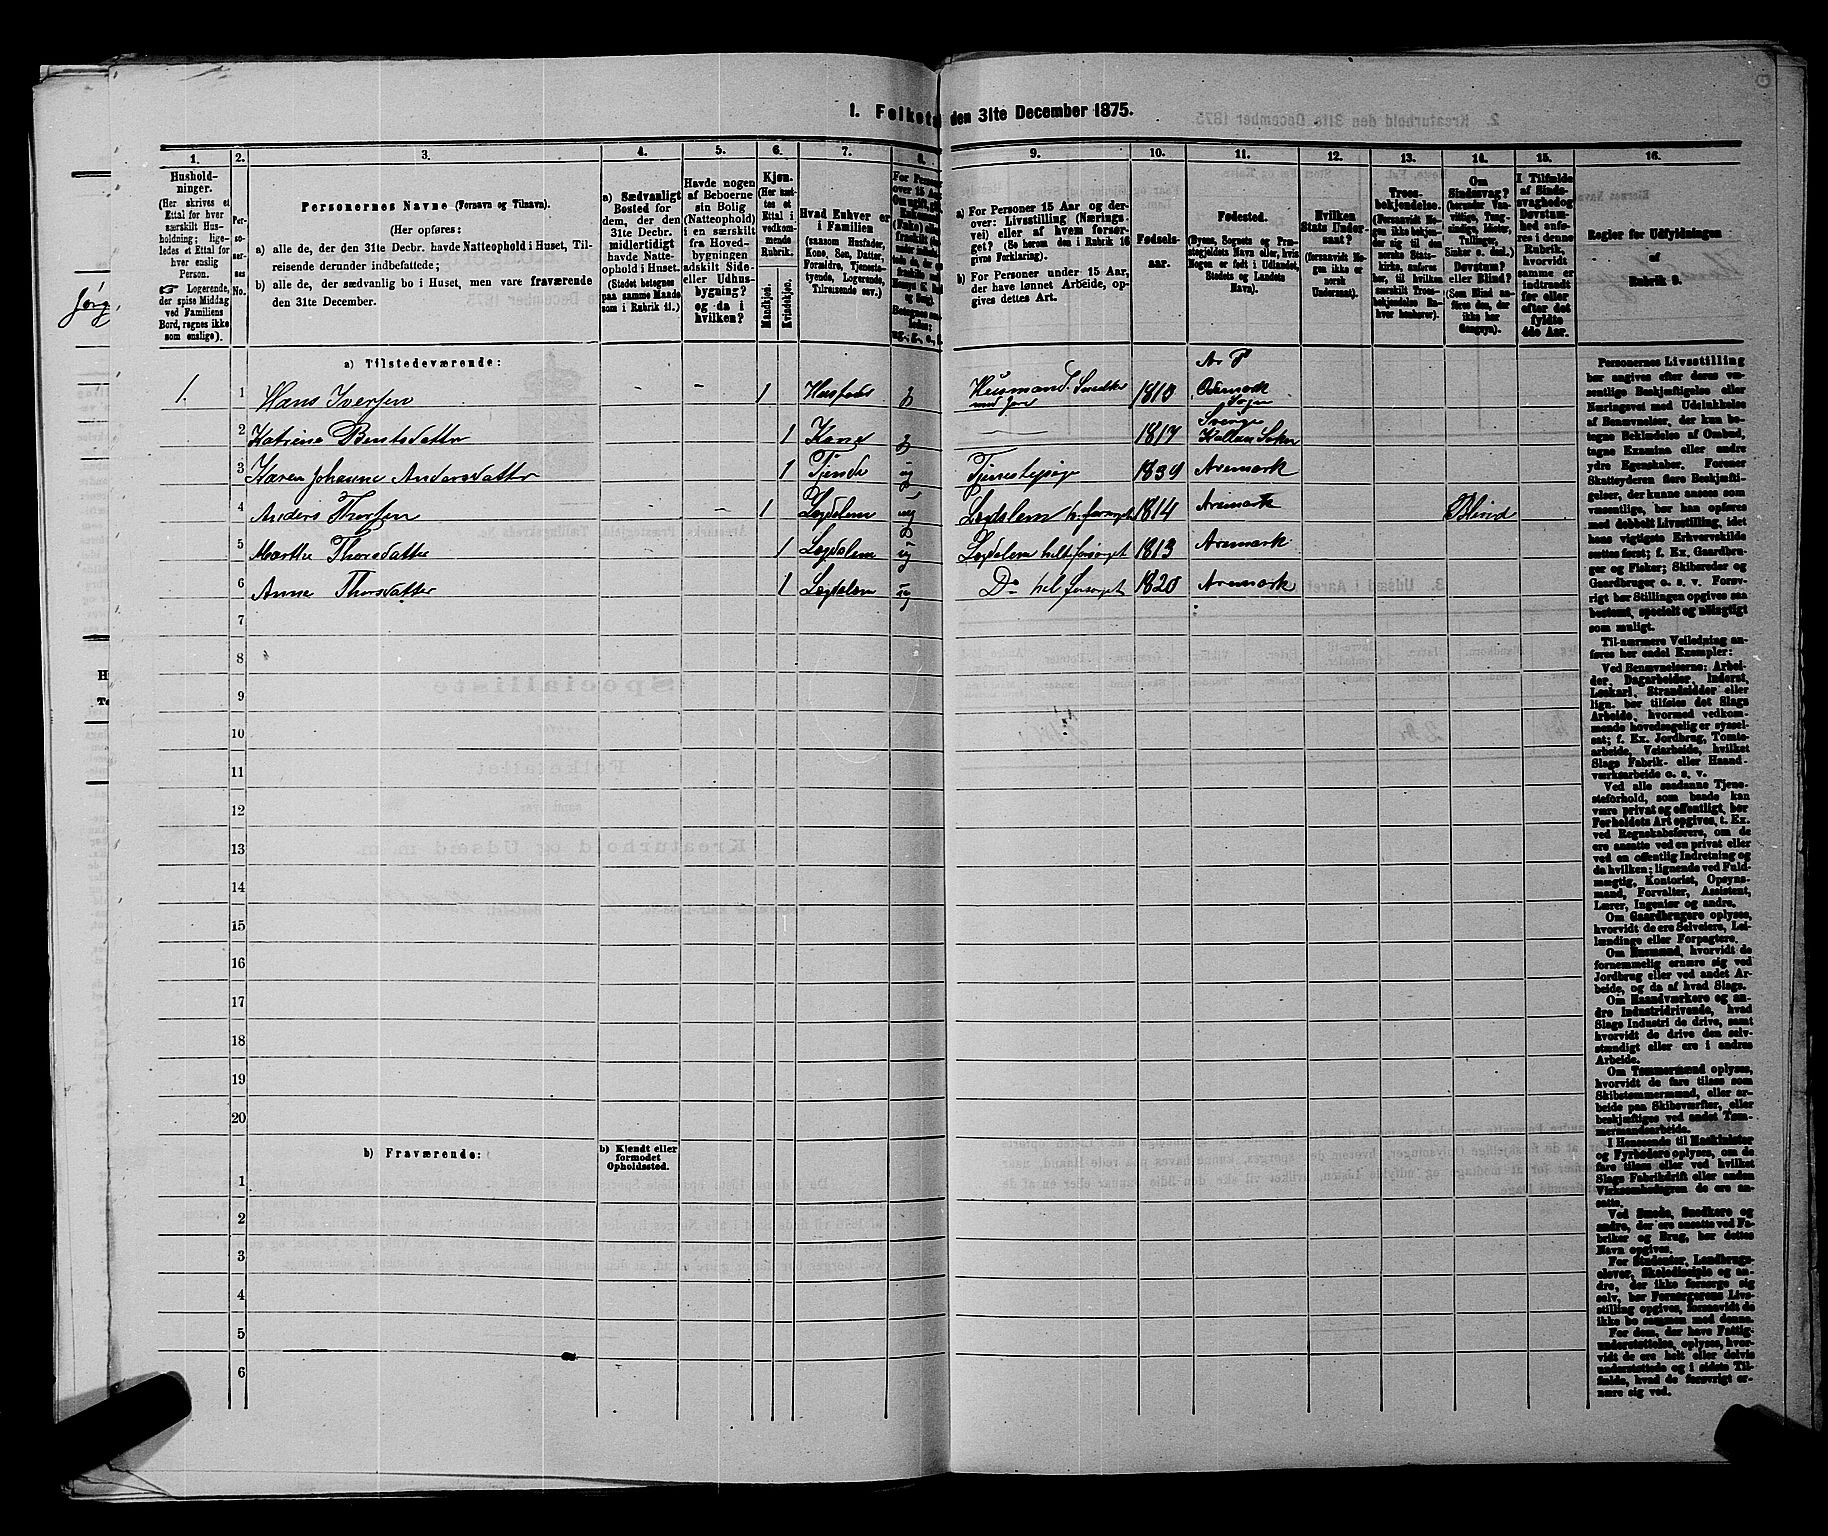 1. Folketa den 31te December 1875.
1.
Hushold-
ninger.
(Her skrives et
Ettal for hver
særskilt Hus-
holdning; lige-
ledes et Ettal for
hver enslig
Person.
Logerende,
der spise Middag
ved Familiens
Bord, regnes ikke
som enslige).
2.
Per-
so-
ner-
nes
No.
3.
Personernes Navne (Fornavn og Tilnavn).
(Her opføres:
a) alle de, der den 31te Decbr. havde Natteophold i Huset, Til-
reisende derunder indbefattede;
b) alle de, der sædvanlig bo i Huset, men vare fraværende
den 31te December.
4.
a) Sædvanligt
Bosted for
dem, der den
31te Decbr.
midlertidigt
havde Natte-
ophold i Huset.
(Stedet betegnes
paa samme Maade
som i Rubrik 11.)
5.
Havde nogen
af Beboerne
sin Bolig
(Natteophold)
i en særskilt
fra Hoved-
bygningen
adskilt Side-
eller Udhus-
bygning?
og da i
hvilken?
6.
Kjøn.
(Her sæt-
tes et
Ettal i
vedkom-
mende
Rubrik.
Mandkjøn.
Kvindekjøn.
7.
Hvad Enhver er
i Familien
(saasom Husfader,
Kone, Søn, Datter,
Forældre, Tjeneste-
tyende, Logerende,
Tilreisende osv.)
8.
9.
a) For Personer 15 Aar og der-
over: Livsstilling (Nærings-
vei) eller af hvem forsør-
get? (Se herom den i Rubrik 16
givne Forklaring).
b) For Personer under 15 Aar,
der have lønnet Arbeide, op-
gives dettes Art.
10.
Fødsels-
aar.
11.
Fødested.
(Byens, Sognets og Præ-
stegjeldets Navn eller, hvis
Nogen er født i Udlandet,
Stedets og Landets
Navn).
12.
Hvilken
Stats Under-
saat?
(forsaavidt No-
gen ikke er
norsk
Undersaat).
13.
Troes-
bekjendelse.
(Forsaavidt No-
gen ikke bekjen-
der sig til den
norske Stats-
kirke, anføres
her, til hvilken
Troes-
bekjendelse En-
hver henhører).
14.
Om
Sindssvag?
(herunder Van-
vittige, Tung-
sindige, Idioter,
Tullinger,
Sinker o. desl.)
Døvstum?
eller Blind?
(Som Blind an-
føres den, der
ikke har
Gangsyn).
15.
I Tilfælde
af Sinds-
svaghed og
Døvstum-
hed anfø-
res i denne
Rubrik,
hvorvidt
samme er
indtraadt
før eller
efter det
fyldte
4de Aar.
16.
Regler for Udfyldningen
af
Rubrik 9.
a) Tilstedeværende:
1. 1 Hans Iversen - - 1 Husfader g Husmand. Snedker med Jord 1810 Ar P Ødemark Sogn
2 Katrine Bentsdatter 1 Kone g 1817 Sverge
3 Karen Johanne Andersdatter 1 Tjende ug Tjenestepige 1839 Aremark
4 Anders Thorsen - 1 Lægdslem ug Lægdslem h. forsørget 1814 Aremark Blind
5 Marthe Thorsdatter 1 Lægdslem ug Lægdslem helt forsørget 1813 Aremark
6 Anne Thorsdatter 1 Lægdslem ug Do hel forsørget 1820 Aremark
7
8
9
10
11
12
13
14
15
16
17
18
19
20
b) Fraværende:
b) Kjendt eller
formodet
Opholdssted.
1
2
3
4
5
6
Personernes Livsstilling
bør angives efter deres væ-
sentlige Beskjæftigelse eller
Næringsvei med Udelukkelse
af Benævnelser, der kun be-
tegne Beklædelse af Ombud,
tagne Examina eller andre
ydre Egenskaber. Forener
Skatteyderen flere Beskjæfti-
gelser, der kunne ansees som
væsentlige, bør han opføres
med dobbelt Livsstilling, idet
hans vigtigste Erhvervskilde
sættes først; f. Ex. Gaardbru-
ger og Fisker; Skibsreder og
Gaardbruger o. s. v. Forøv-
rigt bør Stillingen opgives saa
bestemt, specielt og nøiagtigt
som muligt.
Til nærmere Veiledning an-
føres her endel Exempler:
Ved Benævnelserne: Arbei-
der, Dagarbeider, Inderst,
Løskarl, Strandsidder eller
lign. bør tilføies det Slags
Arbeide, hvormed vedkom-
mende hovedsagelig er syssel-
sat; f. Ex. Jordbrug, Tomte-
arbeide, Veiarbeide, hvilket
Slags Fabrik- eller Haand-
værksarbeide o. s. v.
Ved alle saadanne Tjene-
steforhold, som baade kan
være privat og offentligt, bør
Forholdets Art opgives, t. Ex.
ved Regnskabsførere, om de
ere ansatte ved en privat eller
ved en offentlig Indretning og
da hvilken; lignende ved Fuld-
mægtig, Kontorist, Opsyns-
mand, Forvalter, Assistent,
Lærer, Ingeniør og andre.
Om Gaardbrugere oplyses,
hvorvidt de ere Selveiere, Lei-
lændinge eller Forpagtere.
Om Husmænd, hvorvidt de
fornemmelig ernære sig ved
Jordbrug eller ved andet Ar-
beide, og da af hvad Slags.
Om Haandværkere og an-
dre Industridrivende, hvad
Slags Industri de drive, samt
hvorvidt de drive den selv-
stændigt eller ere i andres
Arbeide.
Om Tømmermænd oplyses,
hvorvidt de fare tilsøs som
Skibstømmermænd, eller ar-
beide paa Skibsværfter, eller
beskjæftiges ved andet Tøm-
mermandsarbeide.
I Henseende til Maskinister
og Fyrbødere oplyses, om de
fare tilsøs eller ved hvilket
Slags Fabrikdrift eller anden
Virksomhed de ere an-
satte.
Ved Smede, Snedkere og
andre, der ere ansatte ved Fa-
briker og Brug, bør dettes
Navn opgives.
For Studenter, Landbrugs-
elever, Skoledisciple og an-
dre, der ikke forsørge sig
selv, bør Forsørgerens Livs-
stilling opgives, forsaavidt de
ikke bo sammen med denne.
For dem, der have Fattig-
understøttelse, oplyses, hvor-
vidt de ere helt eller delvis
understøttede og i sidste Til-
fælde, hvad de forøvrigt er-
nære sig ved.